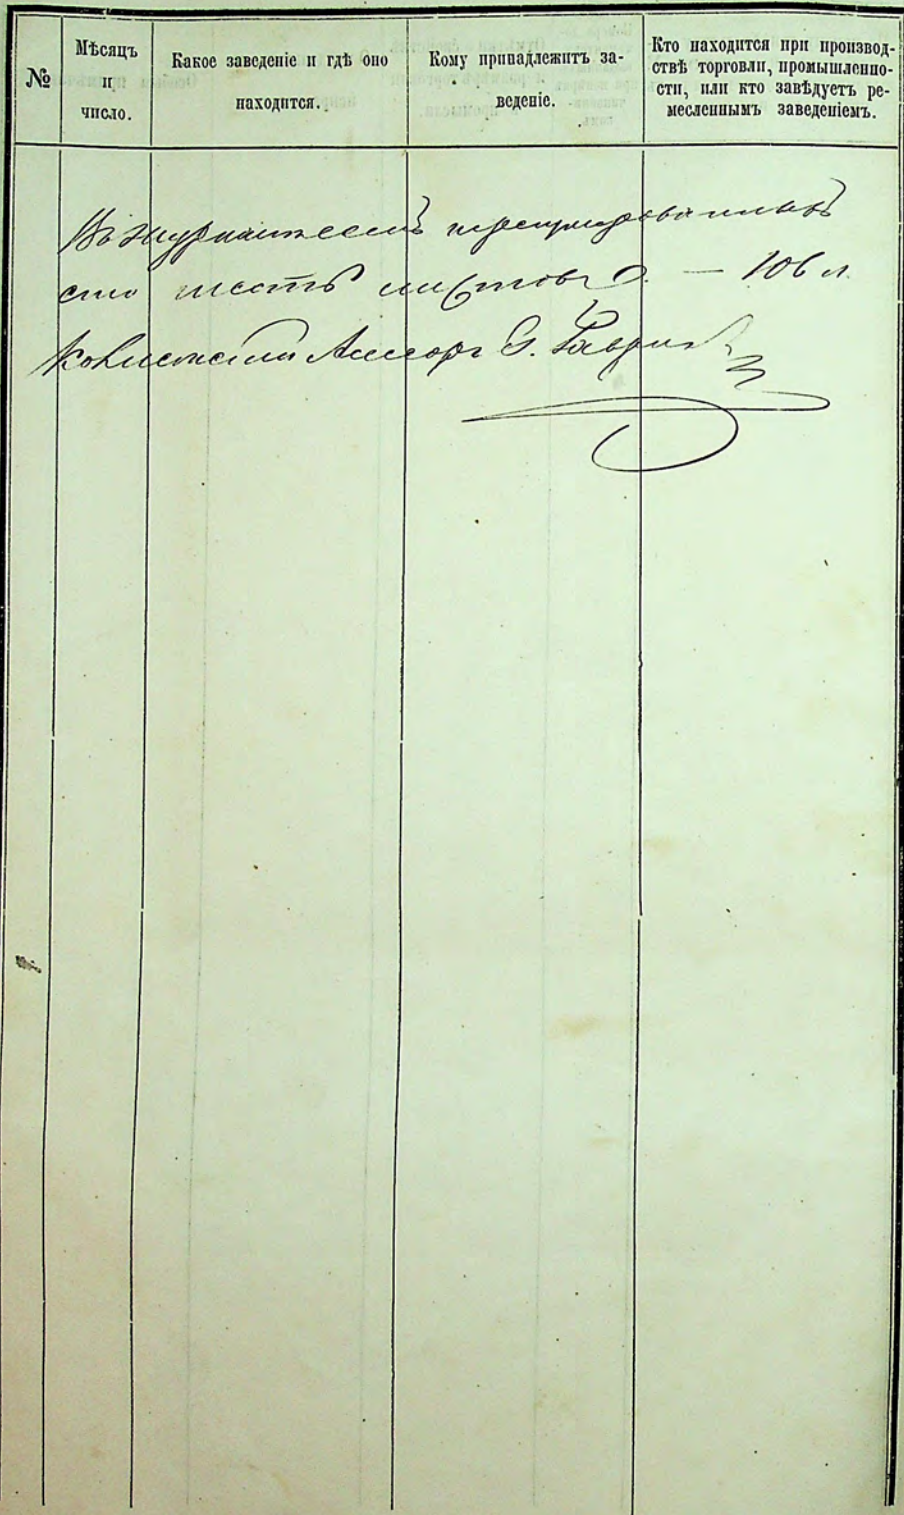 №
Мѣсяцъ
и
число.
Какое заведеніе и гдѣ оно
находится.
Кому принадлежитъ за-
веденіе.
Кто находится при производ-
ствѣ торговли, промышленно-
сти, или кто завѣдуетъ ре-
месленнымъ заведеніемъ.
Въ журналѣ семъ пронумерованныхъ
сто шесть листовъ — 106 л.
Коллежскій Ассесоръ